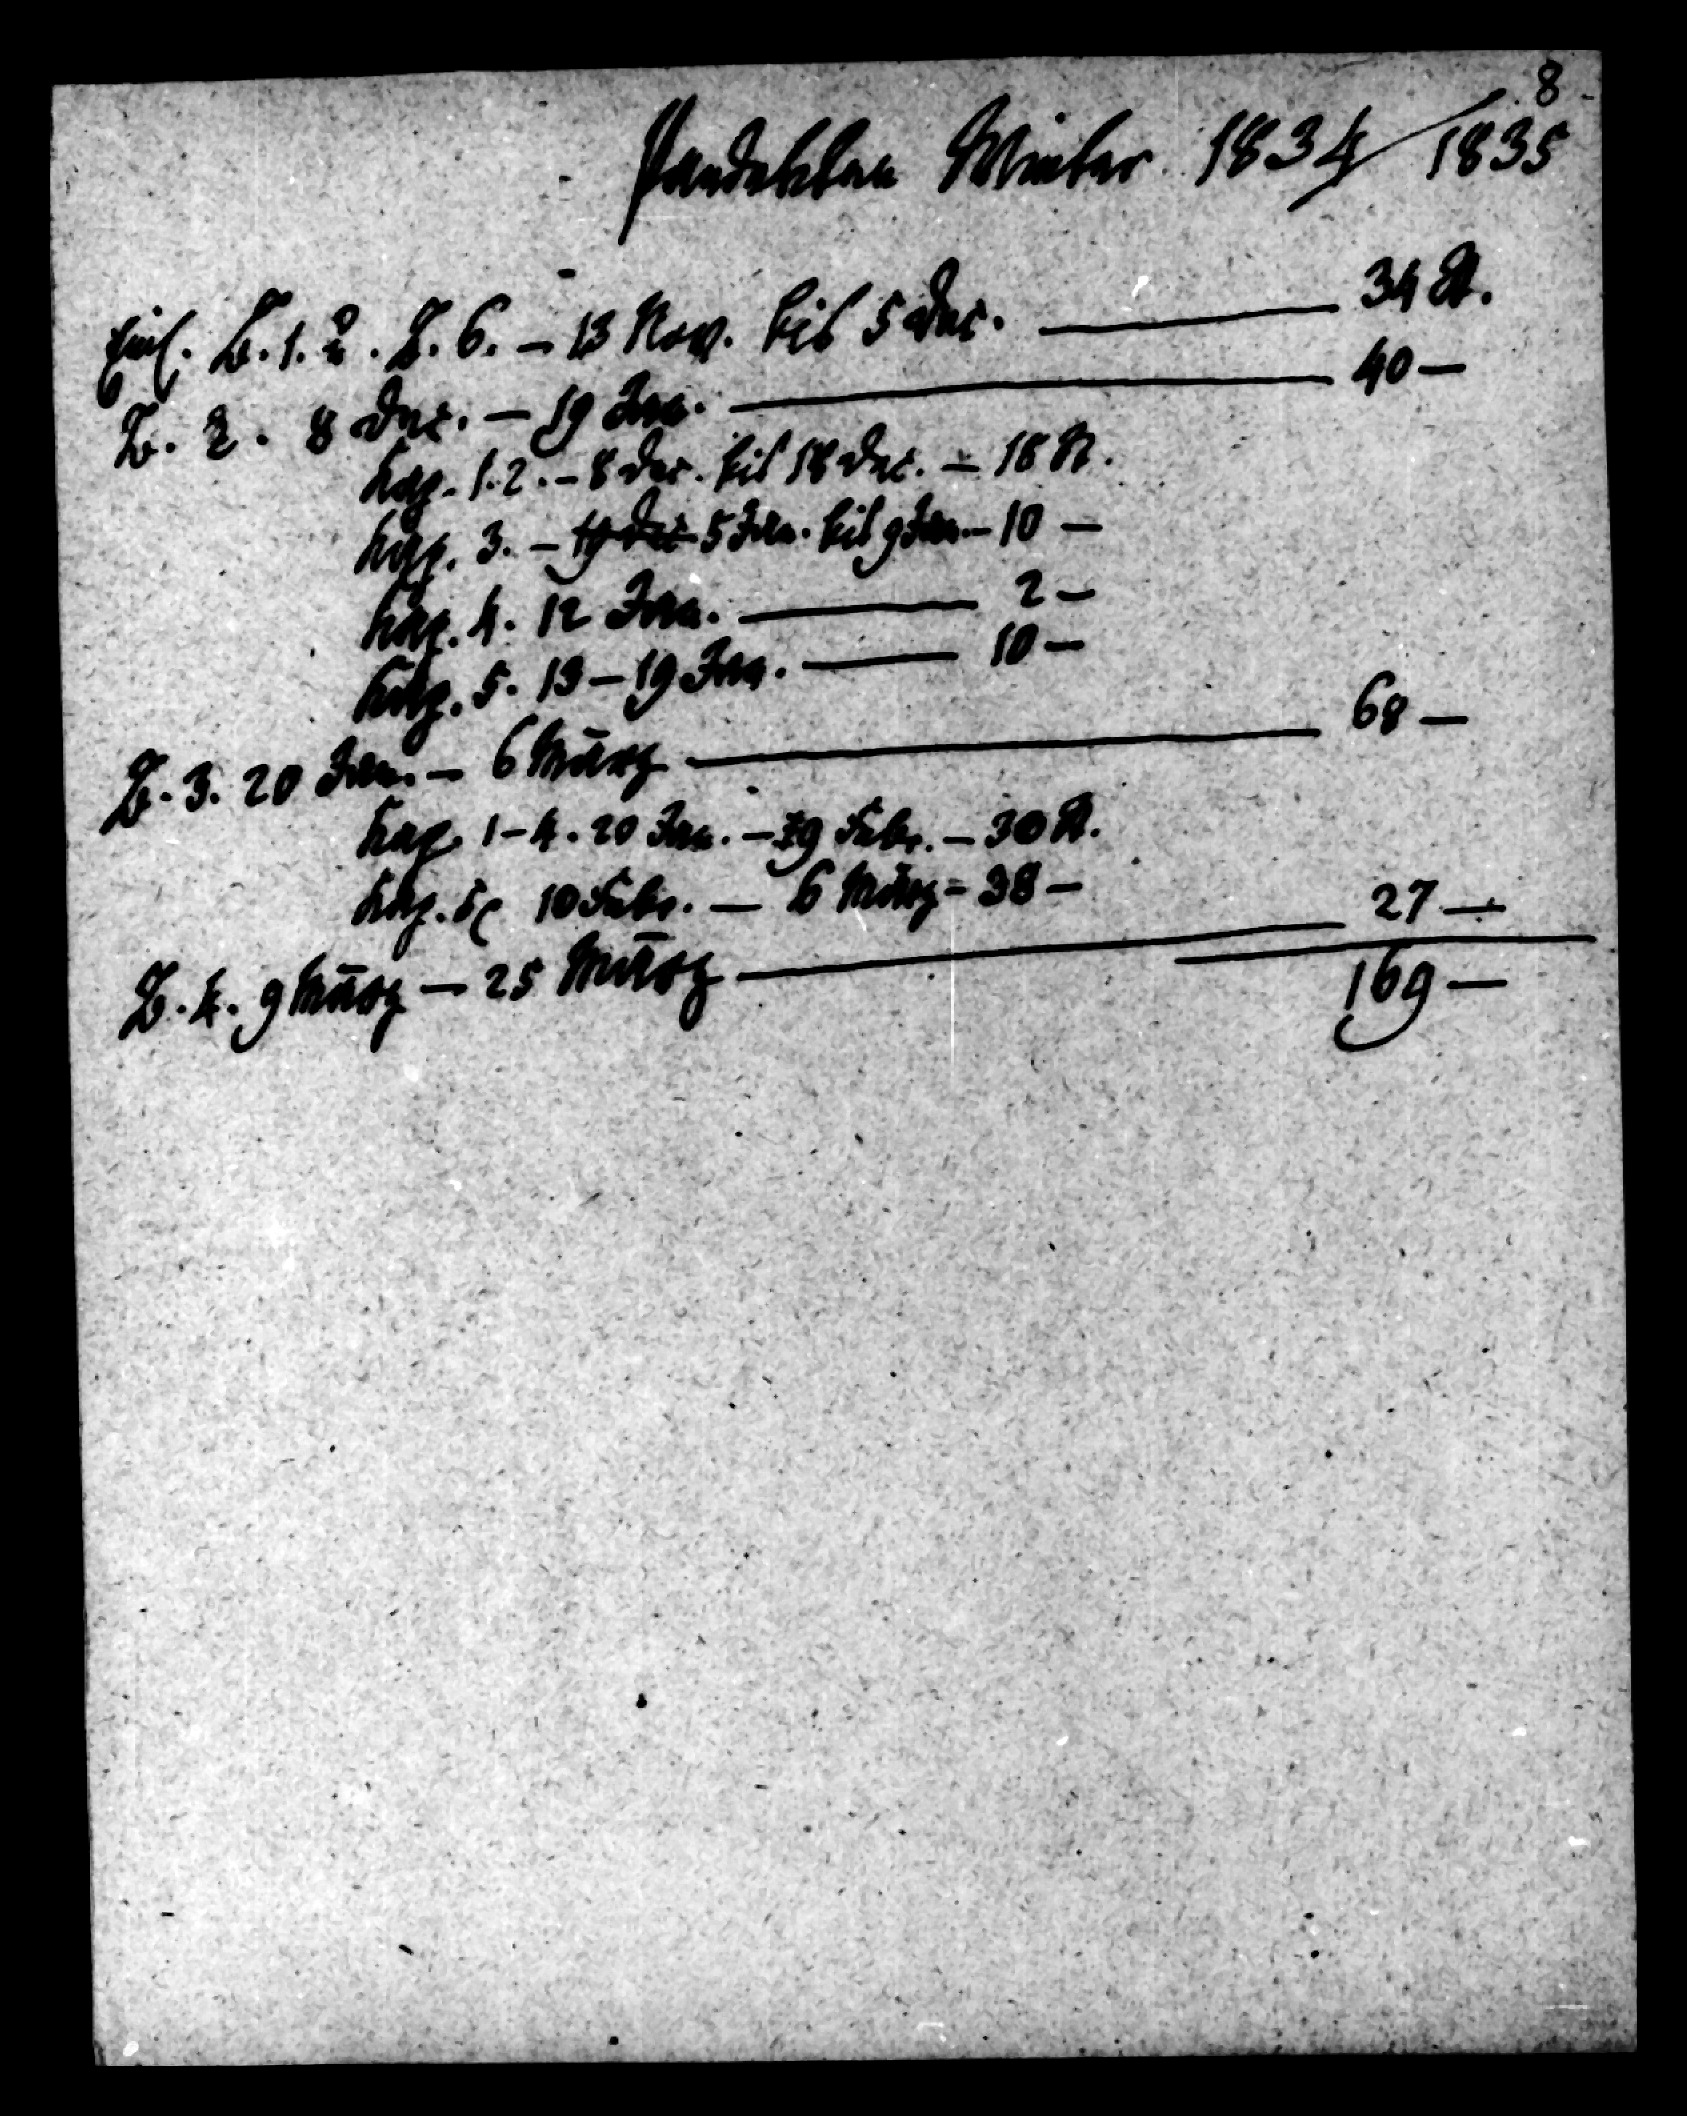 8.
Pandekten Winter 1834/1835
Einl. B. 1. 2. B. 6. – 13 Nov. bis 5 Dec. — 34 St.
B. 2. 8 Dec. – 19 Jan. — 40 –
Kap. 1. 2. – 8 Dec. bis 18 Dec. – 18 St.
Kap. 3. – 19 Dec 5 Jan. bis 9 Jan. – 10 –
Kap. 4. 12 Jan. — 2 –
Kap. 5. 13 – 19 Jan. — 10 –
B. 3. 20 Jan. – 6 März — 68 –
Kap. 1–4. 20 Jan. – 9 Febr. – 30 St.
Kap. 5 10 Febr. — 6 März – 38 –
B. 4. 9 März – 25 März — 27 –
169 –